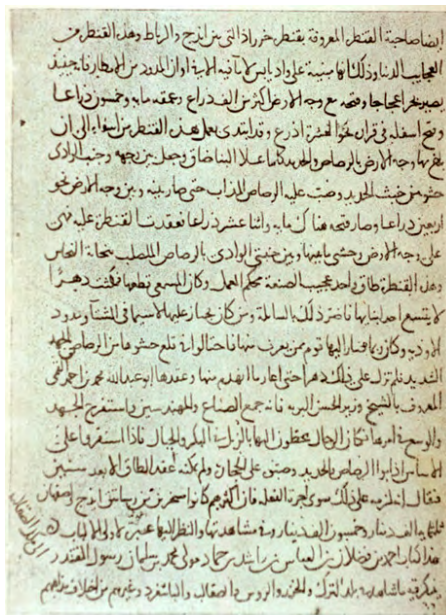 ايضا صاحبة القنطرة المعروفة بقنطرة خرزاذ التى بين ايذج والرباط وهذه القنطرة من
عجايب الدنيا وذلك انها مبنية على واد يابس لا ماء فيه الا فى اوان المدود من الامطار فانه حينئذ
يصير بحرا عجاجا وفتحه مع وجه الارض اكثر من الف ذراع وعمقه مايه وخمسون ذراعا
وفتح اسفله فى قراره نحو العشرة اذرع وقد ابتدى بعمل هذه القنطرة من اسفلها الى ان
بلغ بها وجه الارض بالرصاص والحديد كلما علا البنا ضاق وجعل بين وجهه وجنب الوادى
حشو من خبث الحديد وصب عليه الرصاص المذاب حتى صار بينه وبين وجه الارض نحو
اربعين ذراعا وصار فتحه هناك مايه واثنا عشر ذراعا فعقدت القنطرة عليه فهى
على وجه الارض وحشى ما بينها وبين جنبتى الوادى بالرصاص المصلب بنحاتة النحاس
وهذه القنطرة طاق واحد عجيب الصنعة محكم العمل وكان المسمعى قطعها فمكثت دهرا
لا يتسع احد لبنايها فاضر ذلك بالسابلة ومن كان يجتاز عليها لا سيما فى الشتا ومدود
الاودية وكان ربما صار اليها قوم ممن يعرف منها فاحتالوا فى قلع حشوها من الرصاص بالجهد
الشديد فلم تزل على ذلك دهرا حتى اعاد ما انهدم منها وعقدها ابو عبدالله محمد بن احمد القمى
المعروف بالشيخ وزير الحسن البويه فانه جمع الصناع والمهندسين واستفرغ الجهد
والوسع فى امرها فكان الرجال يحطون اليها بالزبل فى البكر والحبال فاذا استقروا على
الاساس اذابوا الرصاص والحديد وصبوه على الحجارة ولم يمكنه عقد الطاق الا بعد سنتين
فيقال انه لزمه على ذلك سوى اجرة الفعلة فان اكثرهم كانوا مسخرين من رساتيق ايذج واصفهان
ثلثمايه الف دينار وخمسون الف دينار وفى مشاهدتها والنظر اليها عبرة لاولى الالباب
هذا كتاب احمد بن فضلان بن العباس بن راشد بن حماد مولى محمد بن سليمان رسول المقتدر
يذكر فيه ما شاهد فى بلد الترك والخزر والروس والصقالبة والباشغرد وغيرهم من اختلاف مذاهبهم
الى ملك الصقالبة